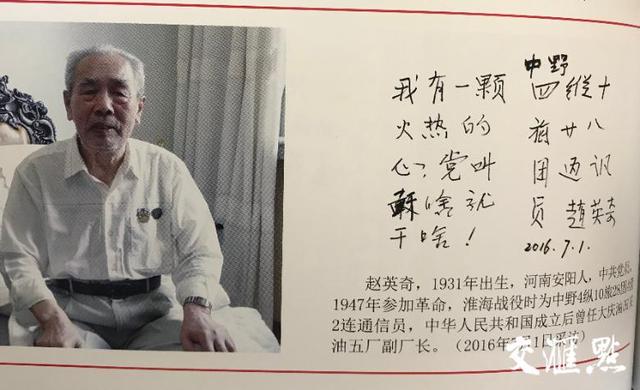 我有一颗
火热的
心:党叫
啥就
干啥!
中野
四纵十
旅廿八
团通讯
员 趙英奇
2016.7.1.
赵英奇,1931年出生,河南安阳人,中共党员,
1947年参加革命,淮海战役时为中野4纵10旅28团
2连通信员,中华人民共和国成立后曾任大庆油田
油五厂副厂长。(2016年7月1日采访)
交滙點